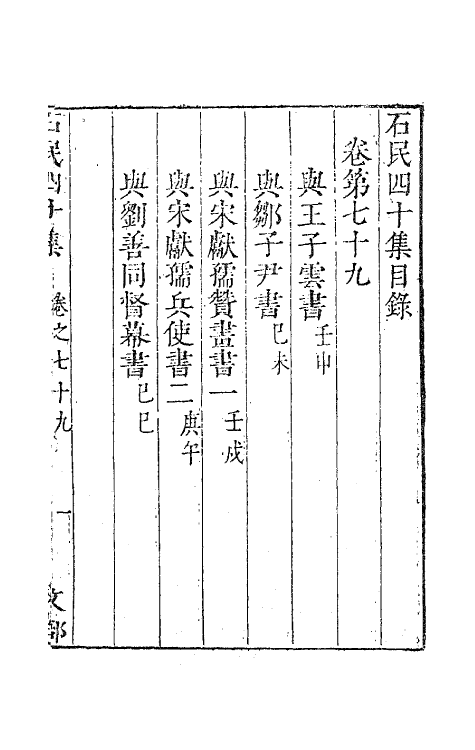 石民四十集目錄
卷第七十九
與王子雲書壬申
與鄒子尹書己未
與宋獻孺贊畫書一壬戌
與宋獻孺兵使書二庚午
與劉善同督幕書己巳
石民四十集 卷之七十九 一 文部